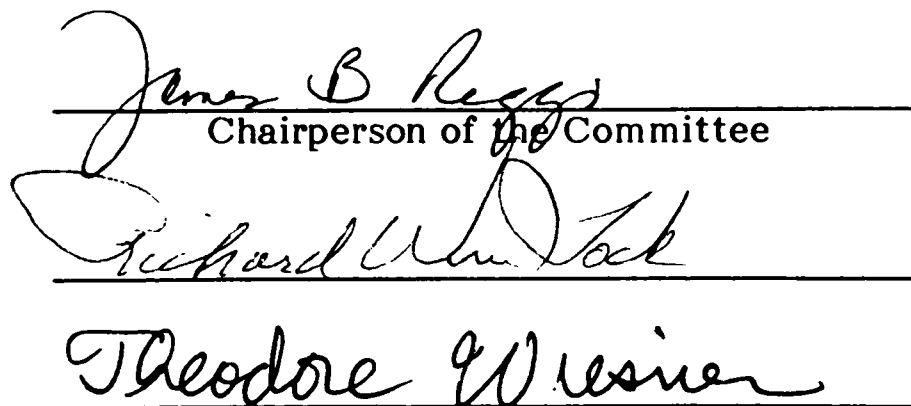 James B Riggs
Chairperson of the Committee
Richard Wm Tock
Theodore Wiesner